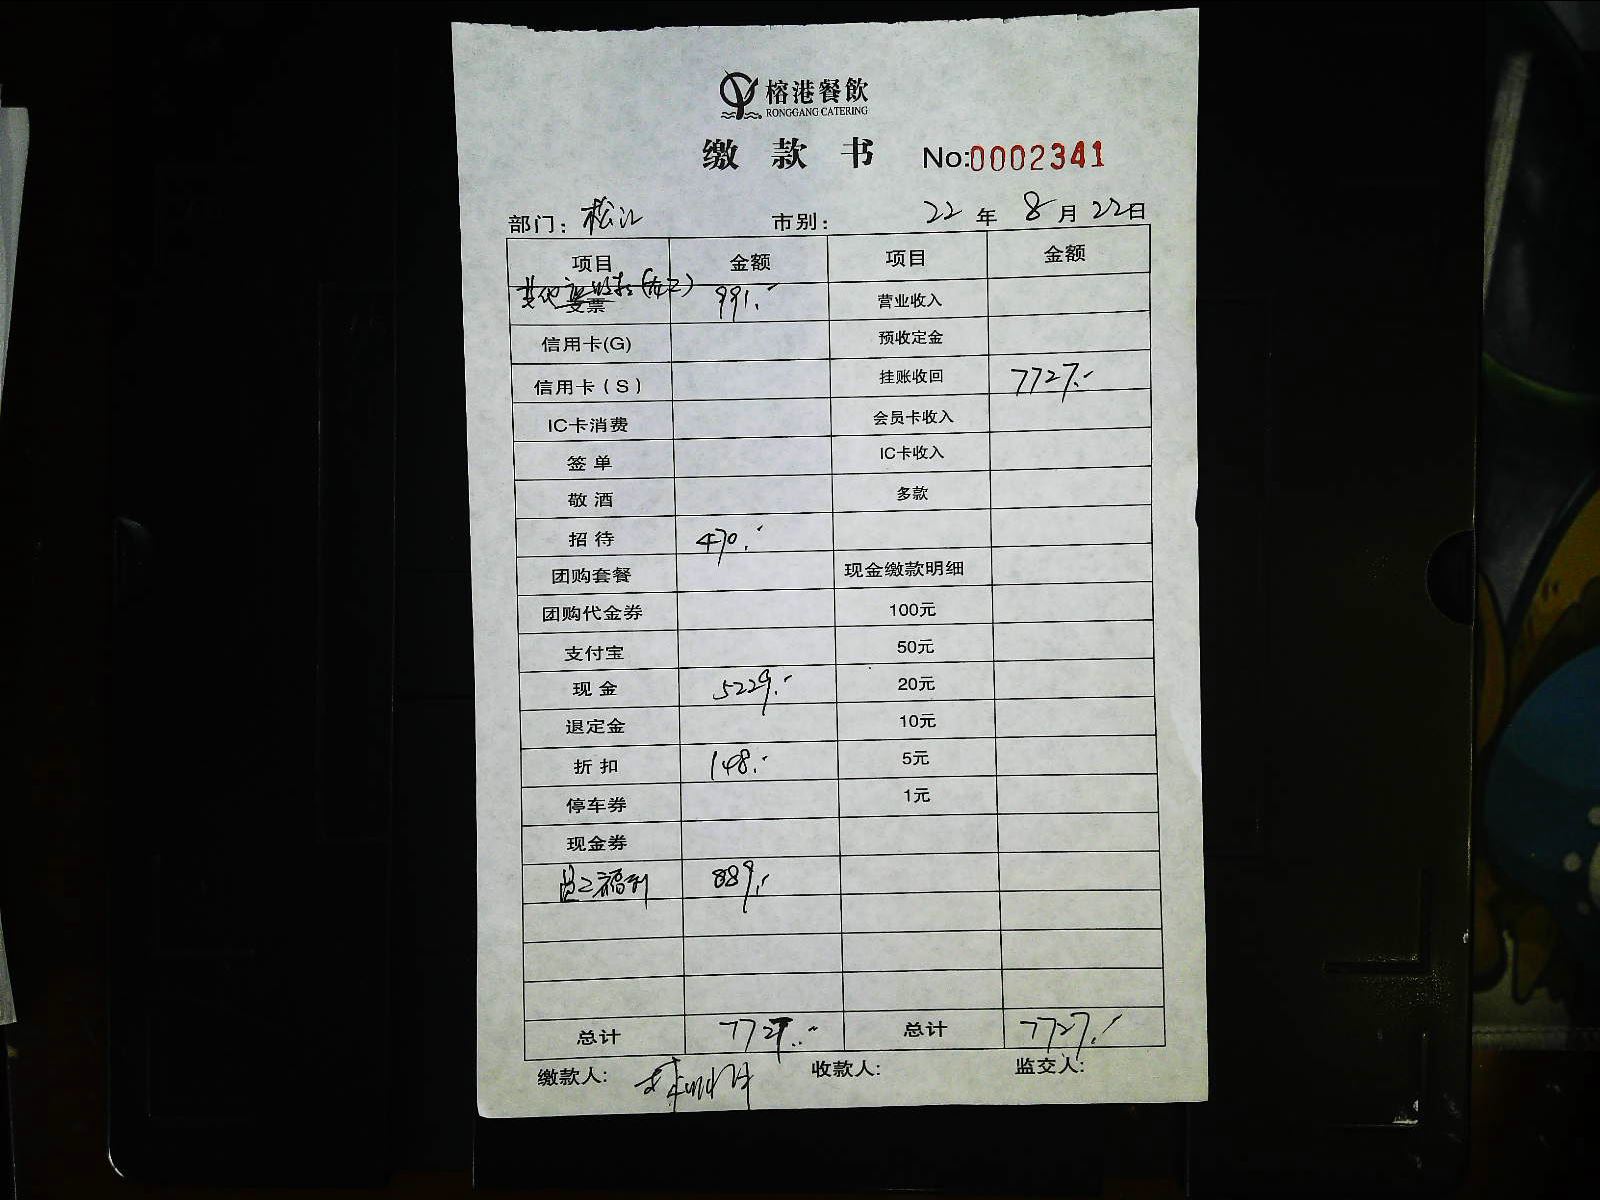 榕港餐飲
RONGGANG CATERING
缴款书 No:0002341
部门: 松江 市别: 22年8月22日
项目 金额 项目 金额
其他 (员工) 支票 991.- 营业收入
信用卡(G) 预收定金
信用卡(S) 挂账收回 7727.-
IC卡消费 会员卡收入
签单 IC卡收入
敬酒 多款
招待 470.-
团购套餐 现金缴款明细
团购代金券 100元
支付宝 50元
现金 5229.- 20元
退定金 10元
折扣 148.- 5元
停车券 1元
现金券
员工福利 889.-
总计 7727.- 总计 7727.-
缴款人: 收款人: 监交人: